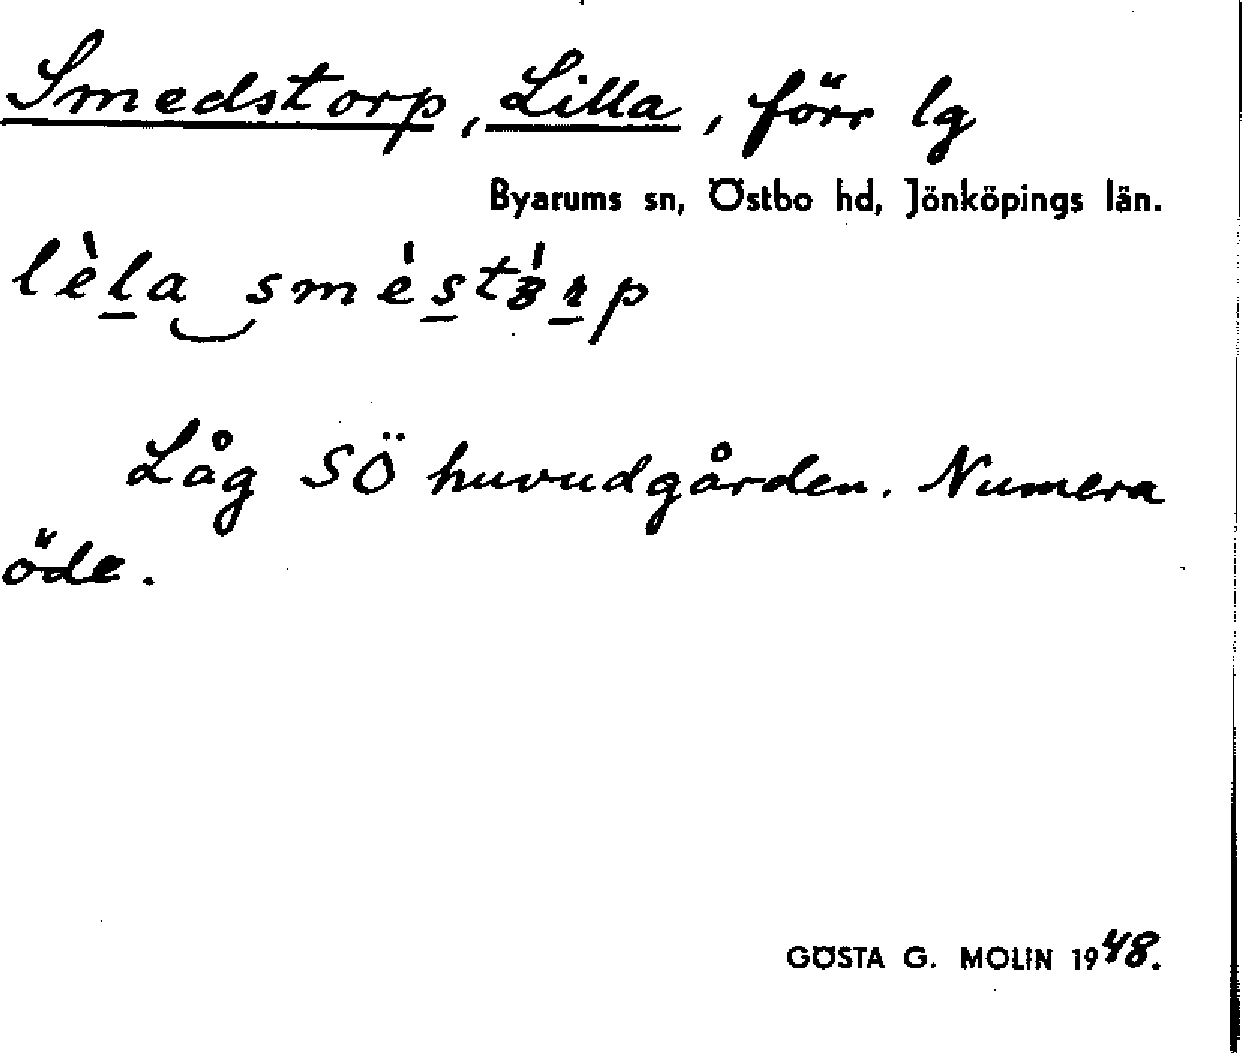 Smedstorp, Lilla, förr lg
Byarums sn, Östbo hd, Jönköpings län.
lèla smèstɞrp
Låg SÖ huvudgården. Numera
öde.
GÖSTA G. MOLIN 1948.